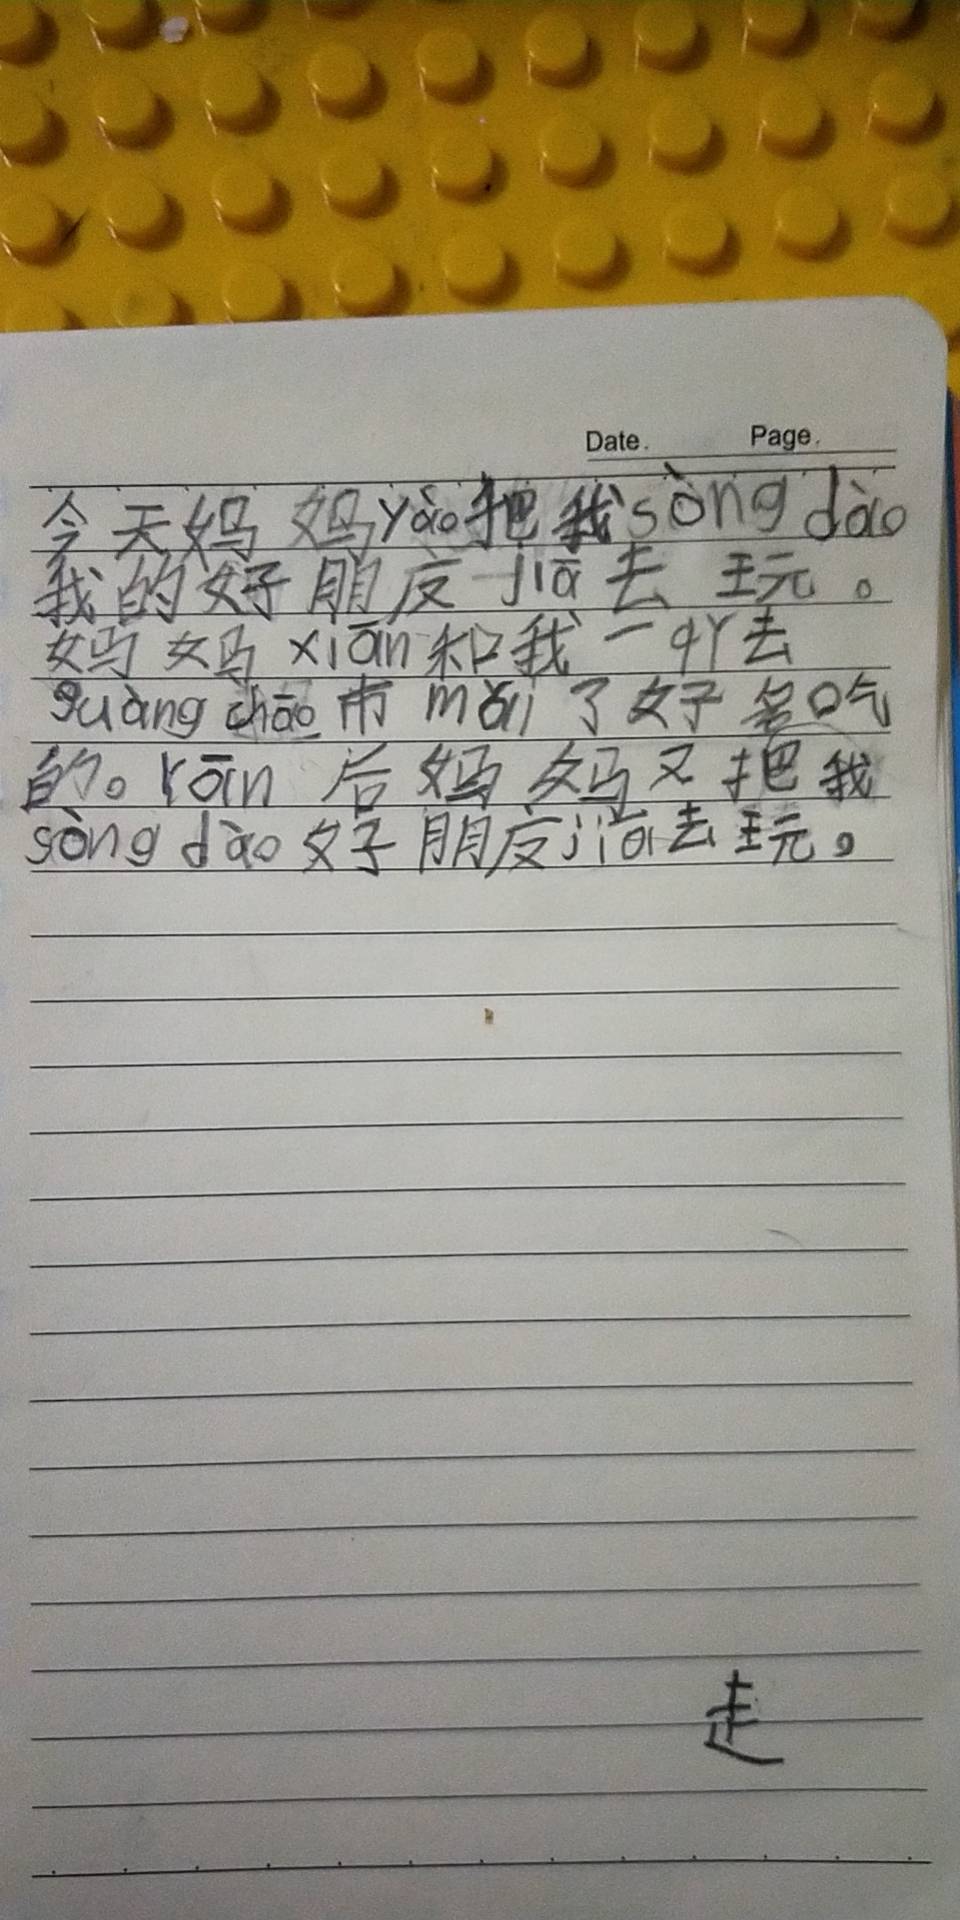 Date. Page.
今天妈妈yào把我sòng dào
我的好朋友jiā去玩。
妈妈xiān和我一qǐ去
guàng chāo市mǎi了好多吃
的。rān后妈妈又把我
sòng dào好朋友jiā去玩。
走